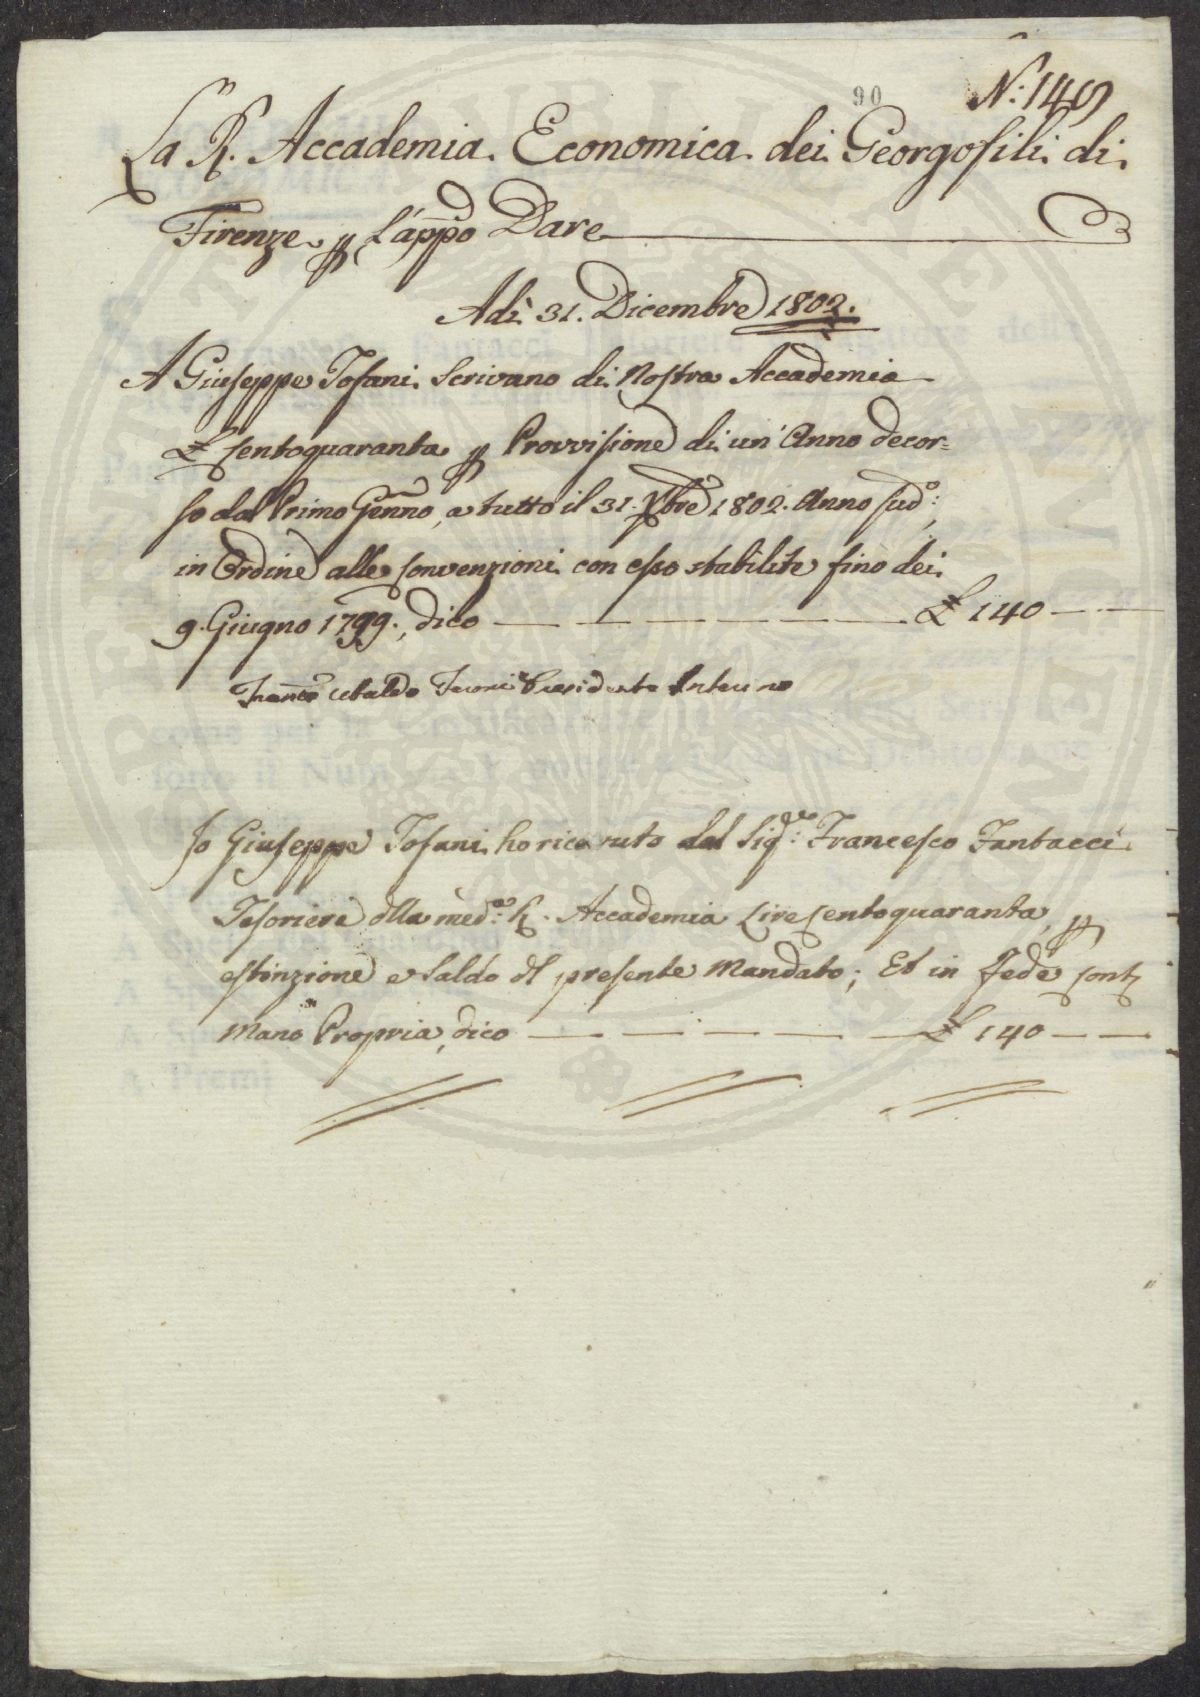 90
N: 149
La R. Accademia Economica dei Georgofili di
Firenze p l'appo Dare
Adì 31. Dicembre 1802.
A Giuseppe Tofani Scrivano di Nostra Accademia
£ Centoquaranta p Provvisione di un' Anno decor=
so dal Primo Genno, a tutto il 31. Xbre 1802. Anno sudo:,
in Ordine alle Convenzioni con esso stabilite fino dei
9. Giugno 1799., dico £ 140
Franco Ubaldo Presidente Interino
Io Giuseppe Tofani ho ricevuto dal Sigre: Francesco Fantacci
Tesoriere dlla meda: R. Accademia Lire Centoquaranta, p
estinzione e Saldo dl presente Mandato; Et in fede
Mano Propria, dico £ 140